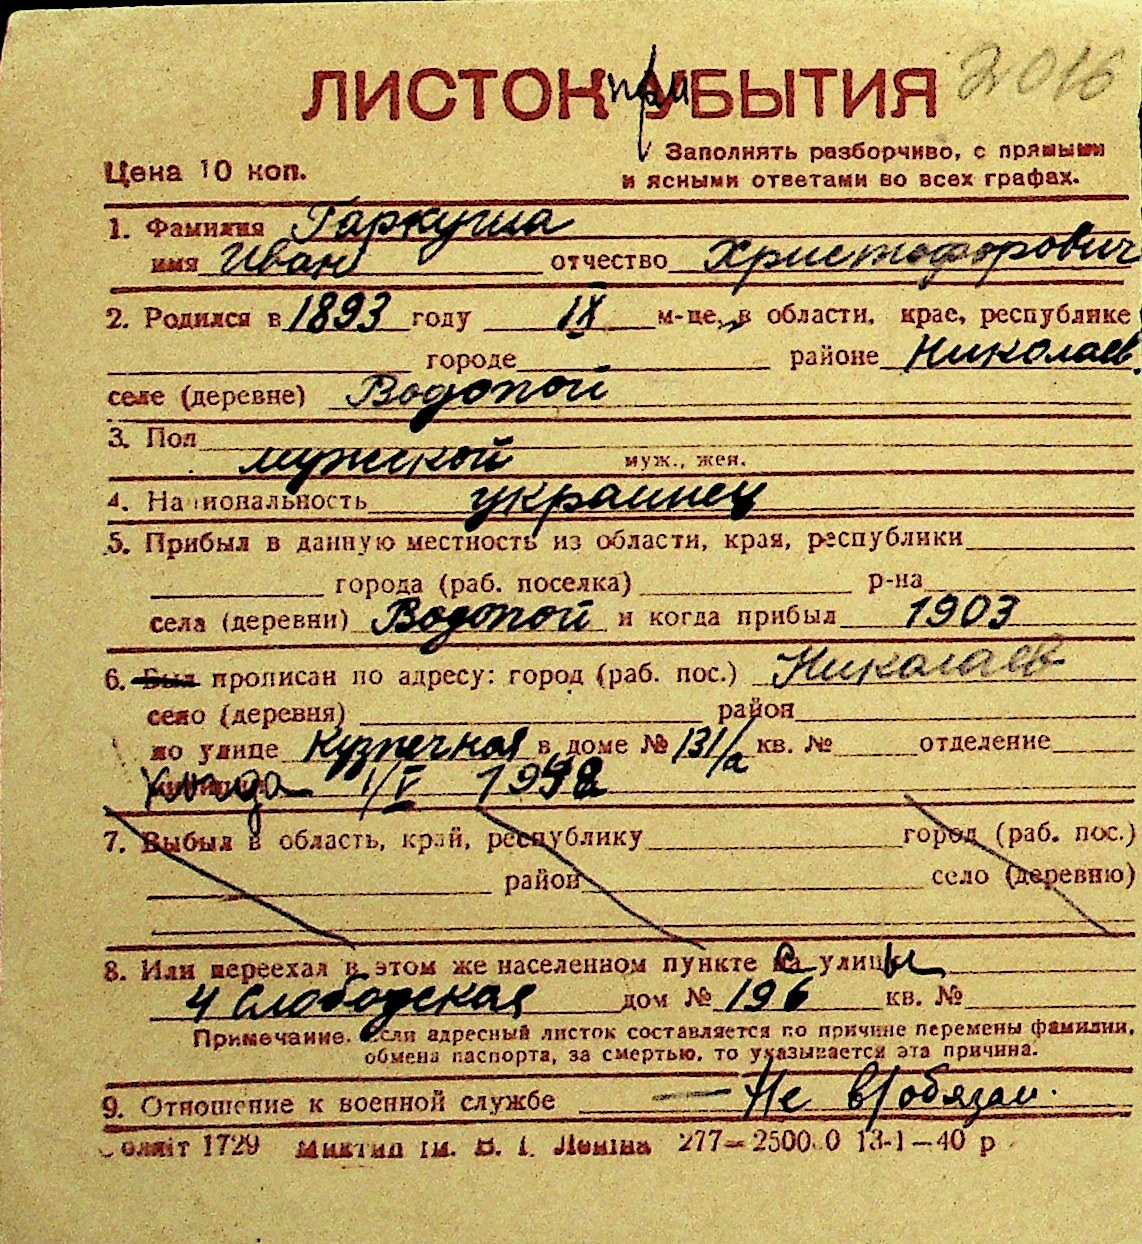 ЛИСТОК прИБЫТИЯ 2016
Заполнять разборчиво, с прямыми
Цена 10 коп.
и ясными ответами во всех графах.
1. Фамилия Гаркуша
имя Иван отчество Христофорович
2. Родился в 1893 году IX м-це, в области, крае, республике
городе районе Николаев.
селе (деревне) Водопой
3. Пол мужской муж., жен.
4. Национальность украинец
5. Прибыл в данную местность из области, края, республики
города (раб. поселка) р-на
села (деревни) Водопой и когда прибыл 1903
6. Был прописан по адресу: город (раб. пос.) Николаев
село (деревня) район
по улице Кузнечная в доме № 131/а кв. № отделение
1/V
7. Выбыл в область, край, республику город (раб. пос.)
район село (деревню)
8. Или переехал в этом же населенном пункте с улицы
4 Слободская дом № 196 кв. №
Примечание. Если адресный листок составляется по причине перемены фамилии,
обмена паспорта, за смертью, то указывается эта причина.
9. Отношение к военной службе — Не в/обязан.
1729 ім. В. І. Леніна 277— 13-1—40 р